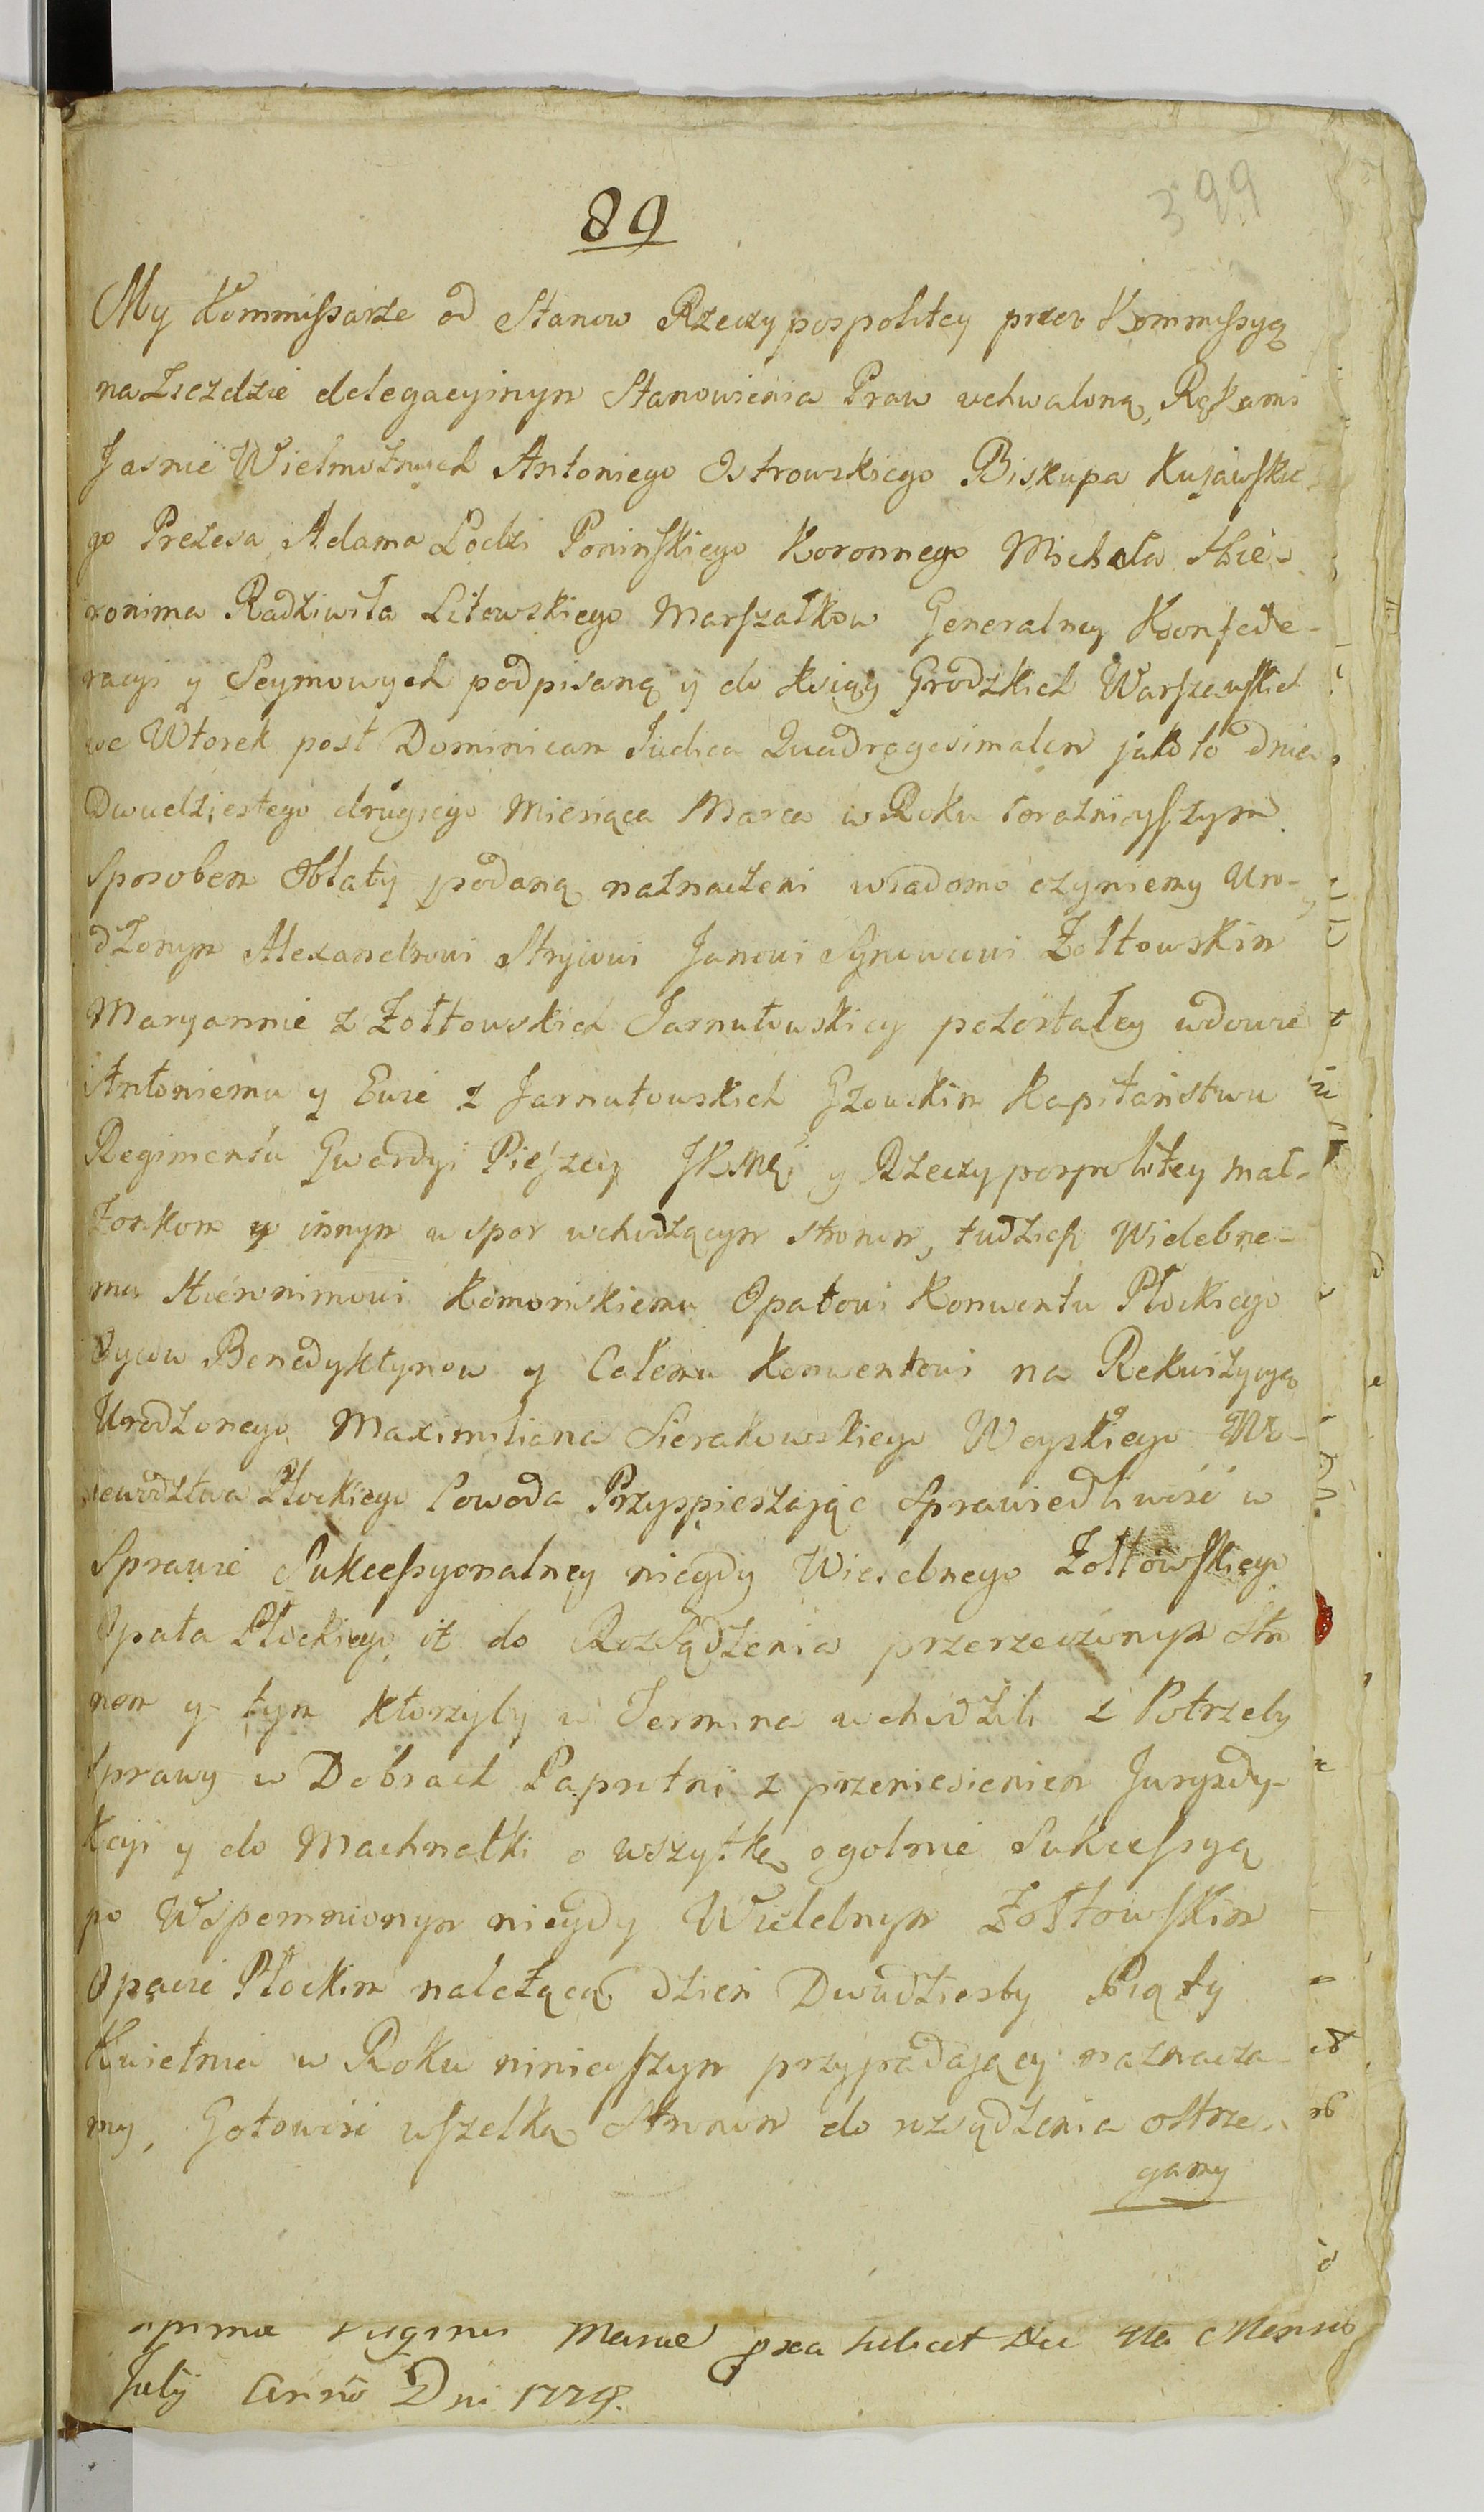 399
89
My Kommissarze od Stanow Rzeczypospolitey przez Kommissyą
na Zieździe delegacyinym Stanowienia Praw uchwaloną, Rękami
Jasnie Wielmożnych Antoniego Ostrowskiego Biskupa Kujawskie
go Prezesa Adama Łodzi Poninskiego Koronnego Michała Hie-
ronima Radziwiła Litewskiego Marszałkow Generalney Konfede-
racyi y Seymowych podpisaną y do Xsiąg Grodzkich Warszawskich
we Wtorek post Dominicam Judica Quadragesimalem jako to dnia
Dwudziestego drugiego Miesiąca Marca w Roku teraznieyszym
Sposobem Oblaty podaną naznaczeni wiadomo czyniemy Uro-
dzonym Alexandrowi Stryiowi Janowi Synowcowi Zołtowskim
Maryannie z Zołtowskich Jarnutowskiey pozostałey wdowie
Antoniemu y Ewie z Jarnutowskich Gzowskim Kapitaństwu
Regimentu Gwardyi Pieszey JKMci y Rzeczypospolitey mał-
żonkom y innym w spor wchodzącym stronom, tudzież Wielebne-
mu Hieronimowi Komornskiemu Opatowi Konwentu Płockiego
Oycow Benedyktynow y Całemu Konwentowi na Rekwizycyą
Urodzonego Maximiliana Sierakowskiego Woyskiego Wo-
iewodztwa Płockiego Powoda Przyspieszaiąc Sprawiedliwość w
Sprawie Sukcessyonalney niegdy Wielebnego Zołtowskiego
Opata Płockiego iż do Rozsądzenia przerzeczonym Stro
nom y tym ktorzyby w Termina wchodzili z Potrzeby
Sprawy w Dobrach Paprotni z przeniesieniem Juryzdy-
kcyi y do Machnatki o wszytkę ogolnie Sukcessyą
po Wspomnionym niegdy Wielebnym Zołtowskim
Opacie Płockim należącą dzień Dwudziesty Piąty
Kwietnia w Roku ninieyszym przypadaiący naznacza-
my, Gotowość wszelką Stronom do rozsądzenia ostrze-
gamy
Virginis Mariae
July Anno Dni 1778.